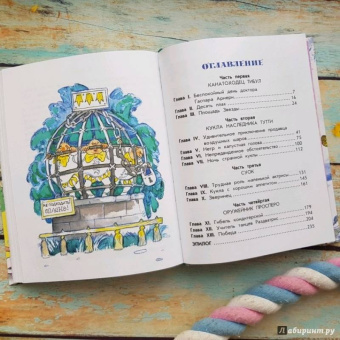 ОГЛАВЛЕНИЕ
Часть первая
КАНАТОХОДЕЦ ТИБУЛ
Глава I. Беспокойный день доктора
Гаспара Арнери 7
Глава II. Десять плах 14
Глава III. Площадь Звезды 24
Часть вторая
КУКЛА НАСЛЕДНИКА ТУТТИ
Глава IV. Удивительное приключение продавца
воздушных шаров
Глава V. Негр и капустная голова
Глава VI. Непредвиденное обстоятельство
Глава VII. Ночь странной куклы
Часть третья
СУОК
Глава VIII. Трудная роль маленькой актрисы
Глава IX. Кукла с хорошим аппетитом
Глава X. Зверинец
Часть четвёртая
ОРУЖЕЙНИК ПРОСПЕРО
Глава XI. Гибель кондитерской 179
Глава XII. Учитель танцев Раздватрис 194
Глава XIII. Победа
ЭПИЛОГ
Лабиринт.ру